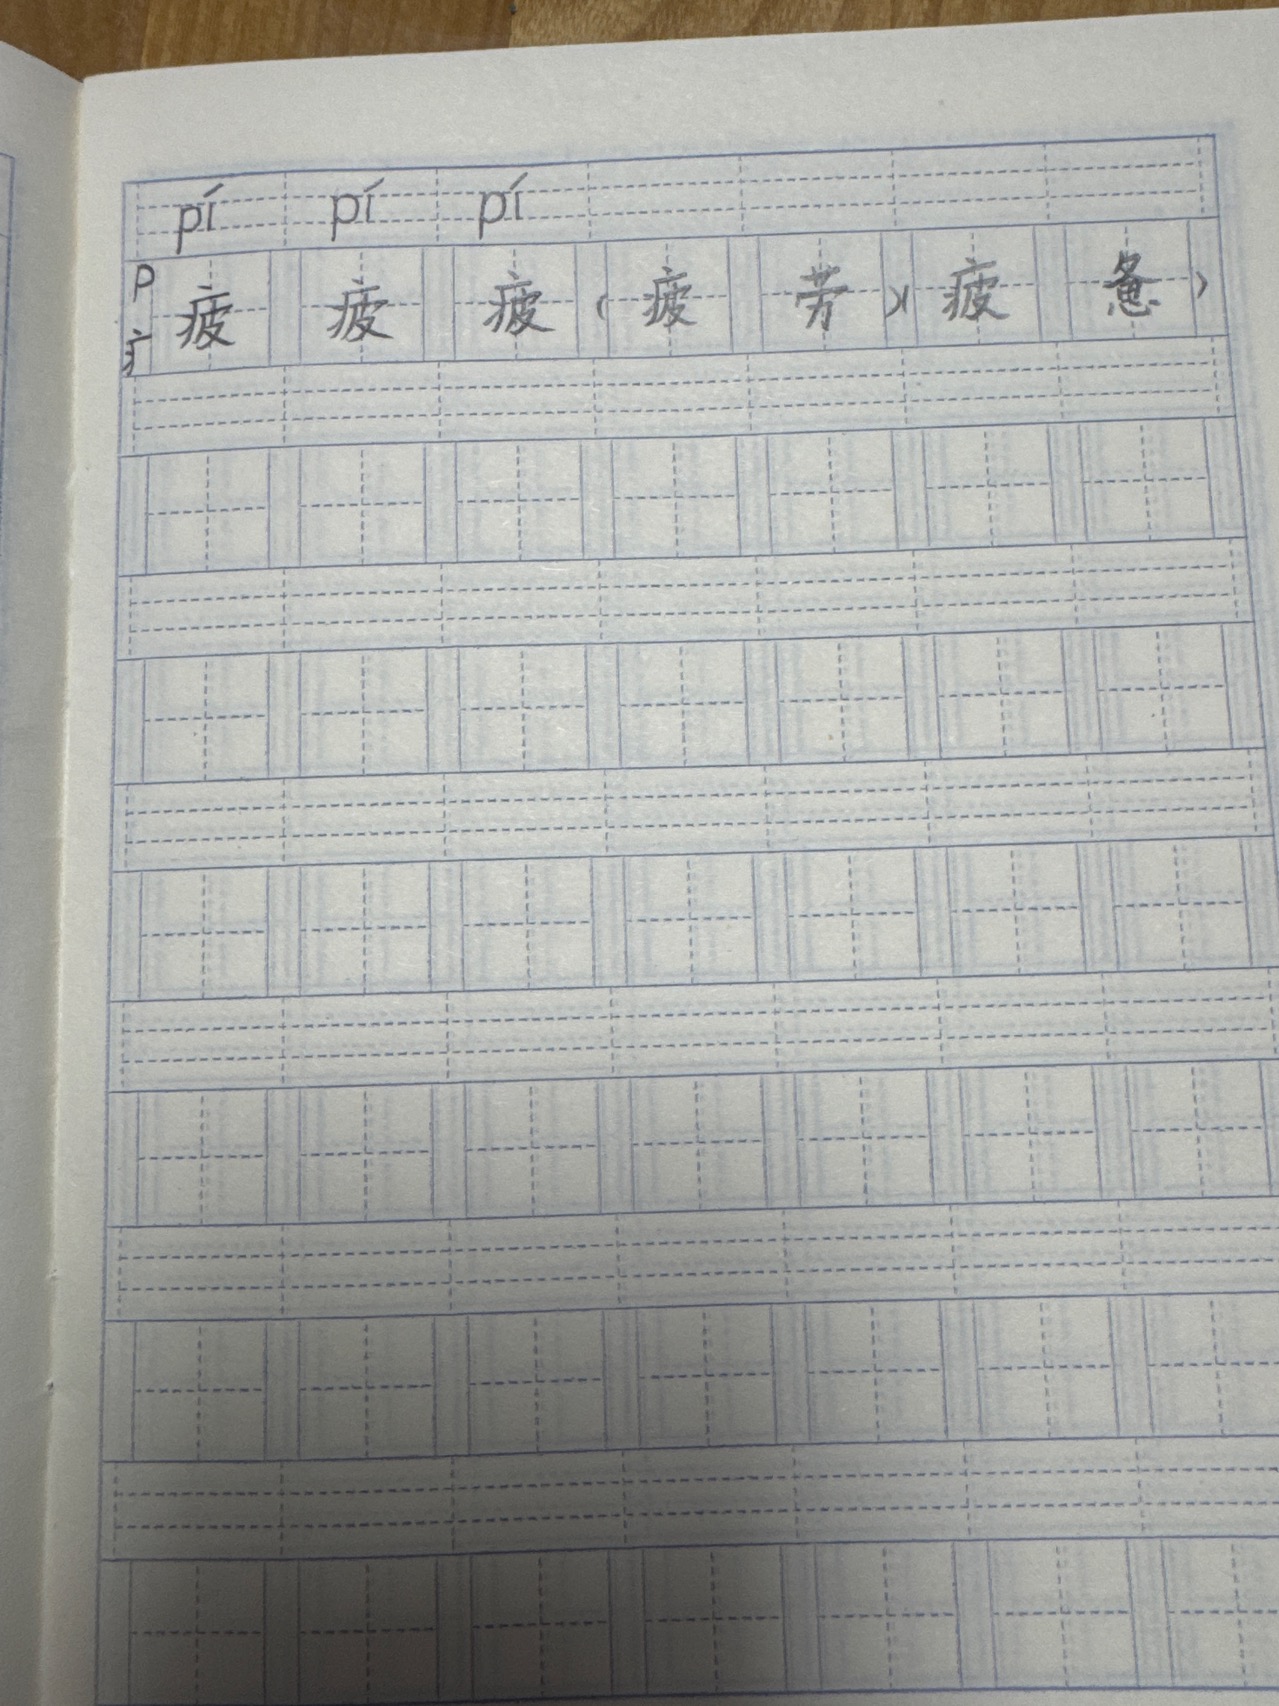 pí pí pí
P
疒 疲 疲 疲 (疲 劳)(疲 惫)